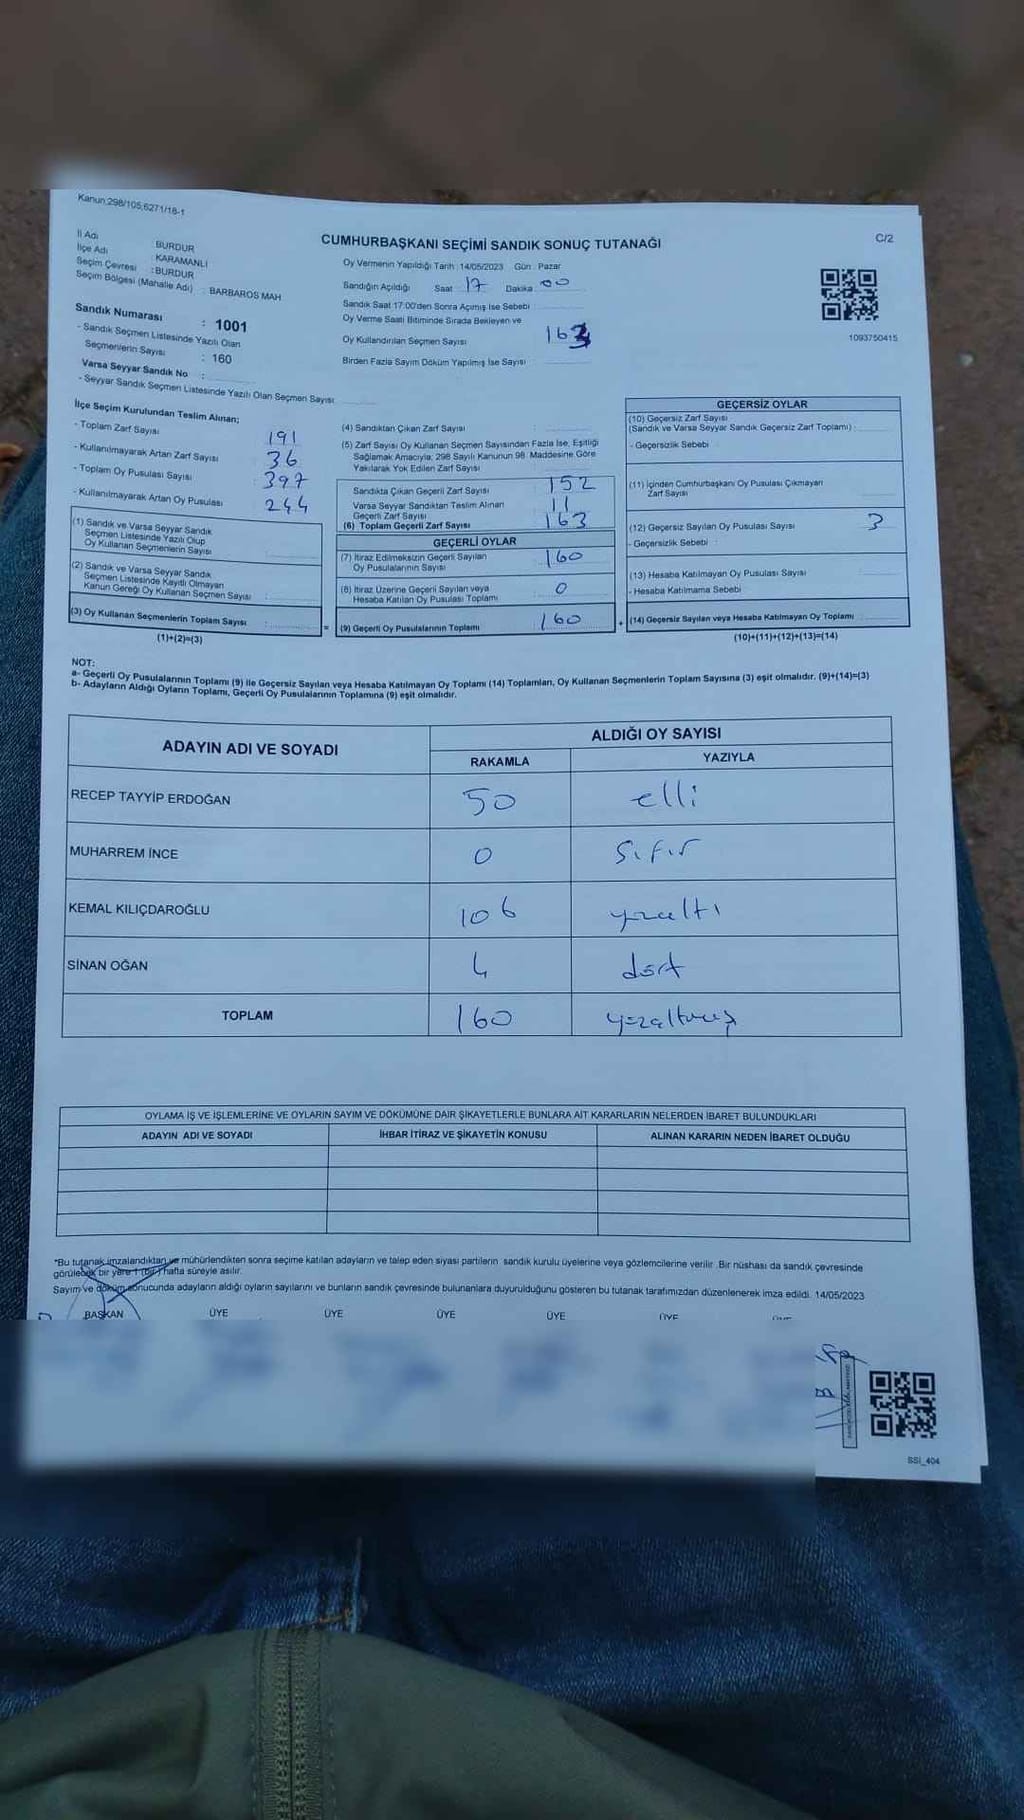 Kanun;298/105,6271/18-1
C/2
CUMHURBAŞKANI SEÇİMİ SANDIK SONUÇ TUTANAĞI
İl Adı BURDUR
İlçe Adı KARAMANLI
Seçim Çevresi :BURDUR
Seçim Bölgesi (Mahalle Adı) : BARBAROS MAH
Sandık Numarası : 1001
- Sandık Seçmen Listesinde Yazılı Olan
Seçmenlerin Sayısı : 160
Varsa Seyyar Sandık No :
- Seyyar Sandık Seçmen Listesinde Yazılı Olan Seçmen Sayısı
Oy Vermenin Yapıldığı Tarih :14/05/2023 Gün : Pazar
Sandığın Açıldığı Saat : 17 Dakika 00
Sandık Saat 17:00'den Sonra Açımış İse Sebebi
Oy Verme Saati Bitiminde Sırada Bekleyen ve
Oy Kullandırılan Seçmen Sayısı 163
Birden Fazla Sayım Döküm Yapılmış İse Sayısı
1093750415
İlçe Seçim Kurulundan Teslim Alınan;
- Toplam Zarf Sayısı 191
- Kullanılmayarak Artan Zarf Sayısı 36
- Toplam Oy Pusulası Sayısı 397
- Kullanılmayarak Artan Oy Pusulası 244
(1) Sandık ve Varsa Seyyar Sandık
Seçmen Listesinde Yazılı Olup
Oy Kullanan Seçmenlerin Sayısı
(2) Sandık ve Varsa Seyyar Sandık
Seçmen Listesinde Kayıtlı Olmayan
Kanun Gereği Oy Kullanan Seçmen Sayısı :
(3) Oy Kullanan Seçmenlerin Toplam Sayısı :
(1)+(2)=(3)
(4) Sandıktan Çıkan Zarf Sayısı
(5) Zarf Sayısı Oy Kullanan Seçmen Sayısından Fazla İse, Eşitliği
Sağlamak Amacıyla; 298 Sayılı Kanunun 98. Maddesine Göre
Yakılarak Yok Edilen Zarf Sayısı
Sandıkta Çıkan Geçerli Zarf Sayısı 152
Varsa Seyyar Sandıktan Teslim Alınan
Geçerli Zarf Sayısı 11
(6) Toplam Geçerli Zarf Sayısı 163
GEÇERLİ OYLAR
(7) İtiraz Edilmeksizin Geçerli Sayılan
Oy Pusulalarının Sayısı 160
(8) İtiraz Üzerine Geçerli Sayılan veya
Hesaba Katılan Oy Pusulası Toplamı 0
= (9) Geçerli Oy Pusulalarının Toplamı 160
GEÇERSİZ OYLAR
(10) Geçersiz Zarf Sayısı
(Sandık ve Varsa Seyyar Sandık Geçersiz Zarf Toplamı) :
- Geçersizlik Sebebi :
(11) İçinden Cumhurbaşkanı Oy Pusulası Çıkmayan
Zarf Sayısı
(12) Geçersiz Sayılan Oy Pusulası Sayısı 3
- Geçersizlik Sebebi :
(13) Hesaba Katılmayan Oy Pusulası Sayısı
- Hesaba Katılmama Sebebi
+ (14) Geçersiz Sayılan veya Hesaba Katılmayan Oy Toplamı
(10)+(11)+(12)+(13)=(14)
NOT:
a- Geçerli Oy Pusulalarının Toplamı (9) ile Geçersiz Sayılan veya Hesaba Katılmayan Oy Toplamı (14) Toplamları, Oy Kullanan Seçmenlerin Toplam Sayısına (3) eşit olmalıdır. (9)+(14)=(3)
b- Adayların Aldığı Oyların Toplamı, Geçerli Oy Pusulalarının Toplamına (9) eşit olmalıdır.
ADAYIN ADI VE SOYADI ALDIĞI OY SAYISI
RAKAMLA YAZIYLA
RECEP TAYYİP ERDOĞAN 50 elli
MUHARREM İNCE 0 sıfır
KEMAL KILIÇDAROĞLU 106 yüzaltı
SİNAN OĞAN 4 dört
TOPLAM 160 yüzaltmış
OYLAMA İŞ VE İŞLEMLERİNE VE OYLARIN SAYIM VE DÖKÜMÜNE DAİR ŞİKAYETLERLE BUNLARA AİT KARARLARIN NELERDEN İBARET BULUNDUKLARI
ADAYIN ADI VE SOYADI İHBAR İTİRAZ VE ŞİKAYETİN KONUSU ALINAN KARARIN NEDEN İBARET OLDUĞU
*Bu tutanak imzalandıktan ve mühürlendikten sonra seçime katılan adayların ve talep eden siyasi partilerin sandık kurulu üyelerine veya gözlemcilerine verilir. Bir nüshası da sandık çevresinde
görülecek bir yere 1 (bir) hafta süreyle asılır.
Sayım ve döküm sonucunda adayların aldığı oyların sayılarını ve bunların sandık çevresinde bulunanlara duyurulduğunu gösteren bu tutanak tarafımızdan düzenlenerek imza edildi. 14/05/2023
BAŞKAN ÜYE ÜYE ÜYE ÜYE ÜYE
SSI_404